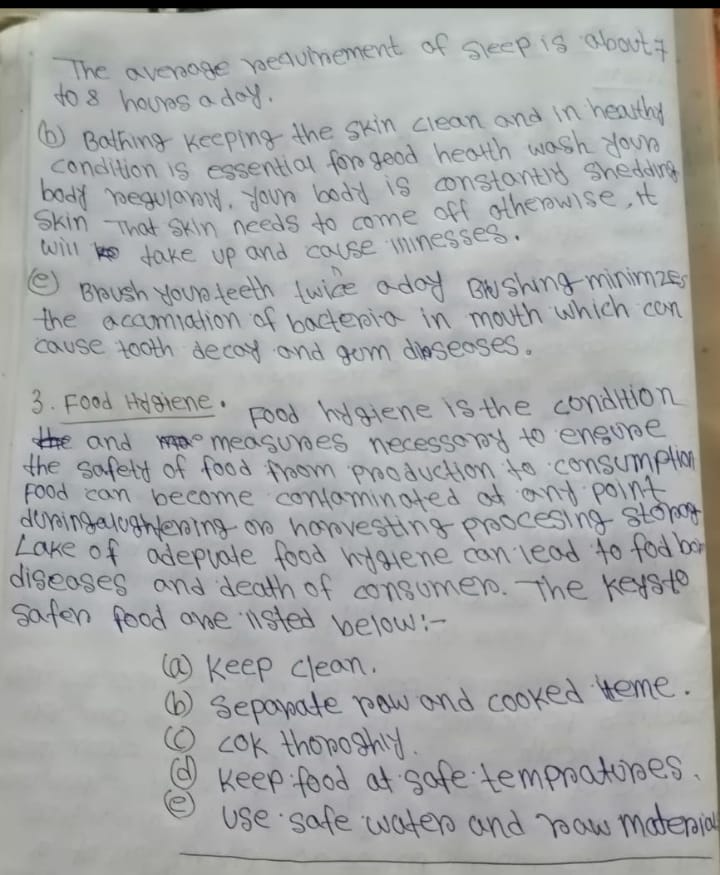 The average requirement of sleep is about 7
to 8 hours a day.
(b) Bathing keeping the skin clean and in heathy
condition is essential for good heatth wash your
body regularly. your body is constantly shedding
skin That skin needs to come off otherwise, it
will take up and cause illnesses.
(e) Brush your teeth twice a day Brushing minimzes
the accamiation of bacteria in mouth which can
cause tooth decay and gum diseases.
3. Food Hygiene. Food hygiene is the condition
the and measures necessary to ensure
the safety of food from production to consumption
Food can become contaminated at any point
during slughtering or harvesting procesing storag
Lake of adequate food hygiene can lead to fod bor
diseases and death of consumer. The keys to
safer food are listed below:-
(a) keep clean.
(b) separate row and cooked iteme.
(c) cok thoroghly.
(d) keep food at safe tempratures.
(e) use safe water and raw material